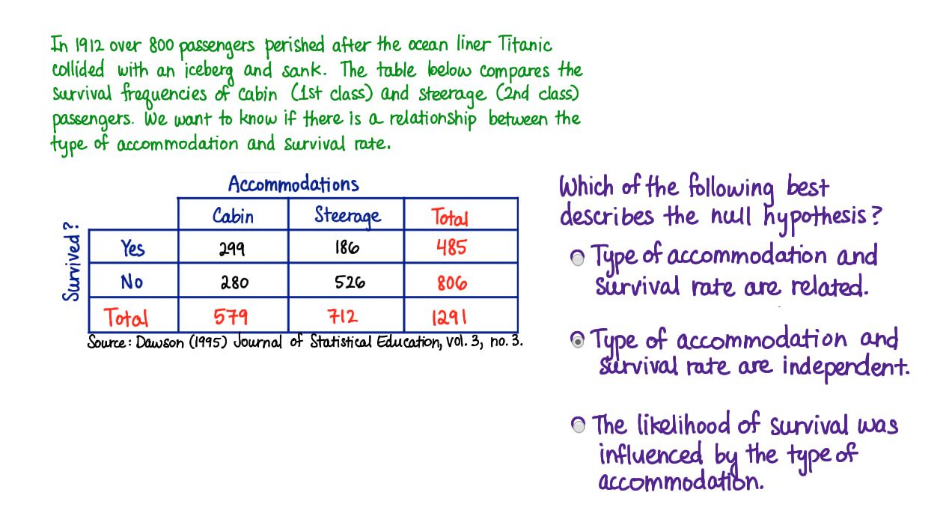 In 1912 over 800 passengers perished after the ocean liner Titanic
collided with an iceberg and sank. The table below compares the
survival frequencies of cabin (1st class) and steerage (2nd class)
passengers. We want to know if there is a relationship between the
type of accommodation and survival rate.
Accommodations
Cabin Steerage Total
Survived?
Yes 299 186 485
No 280 526 806
Total 579 712 1291
Source: Dawson (1995) Journal of Statistical Education, vol. 3, no. 3.
Which of the following best
describes the null hypothesis?
Type of accommodation and
survival rate are related.
Type of accommodation and
survival rate are independent.
The likelihood of survival was
influenced by the type of
accommodation.